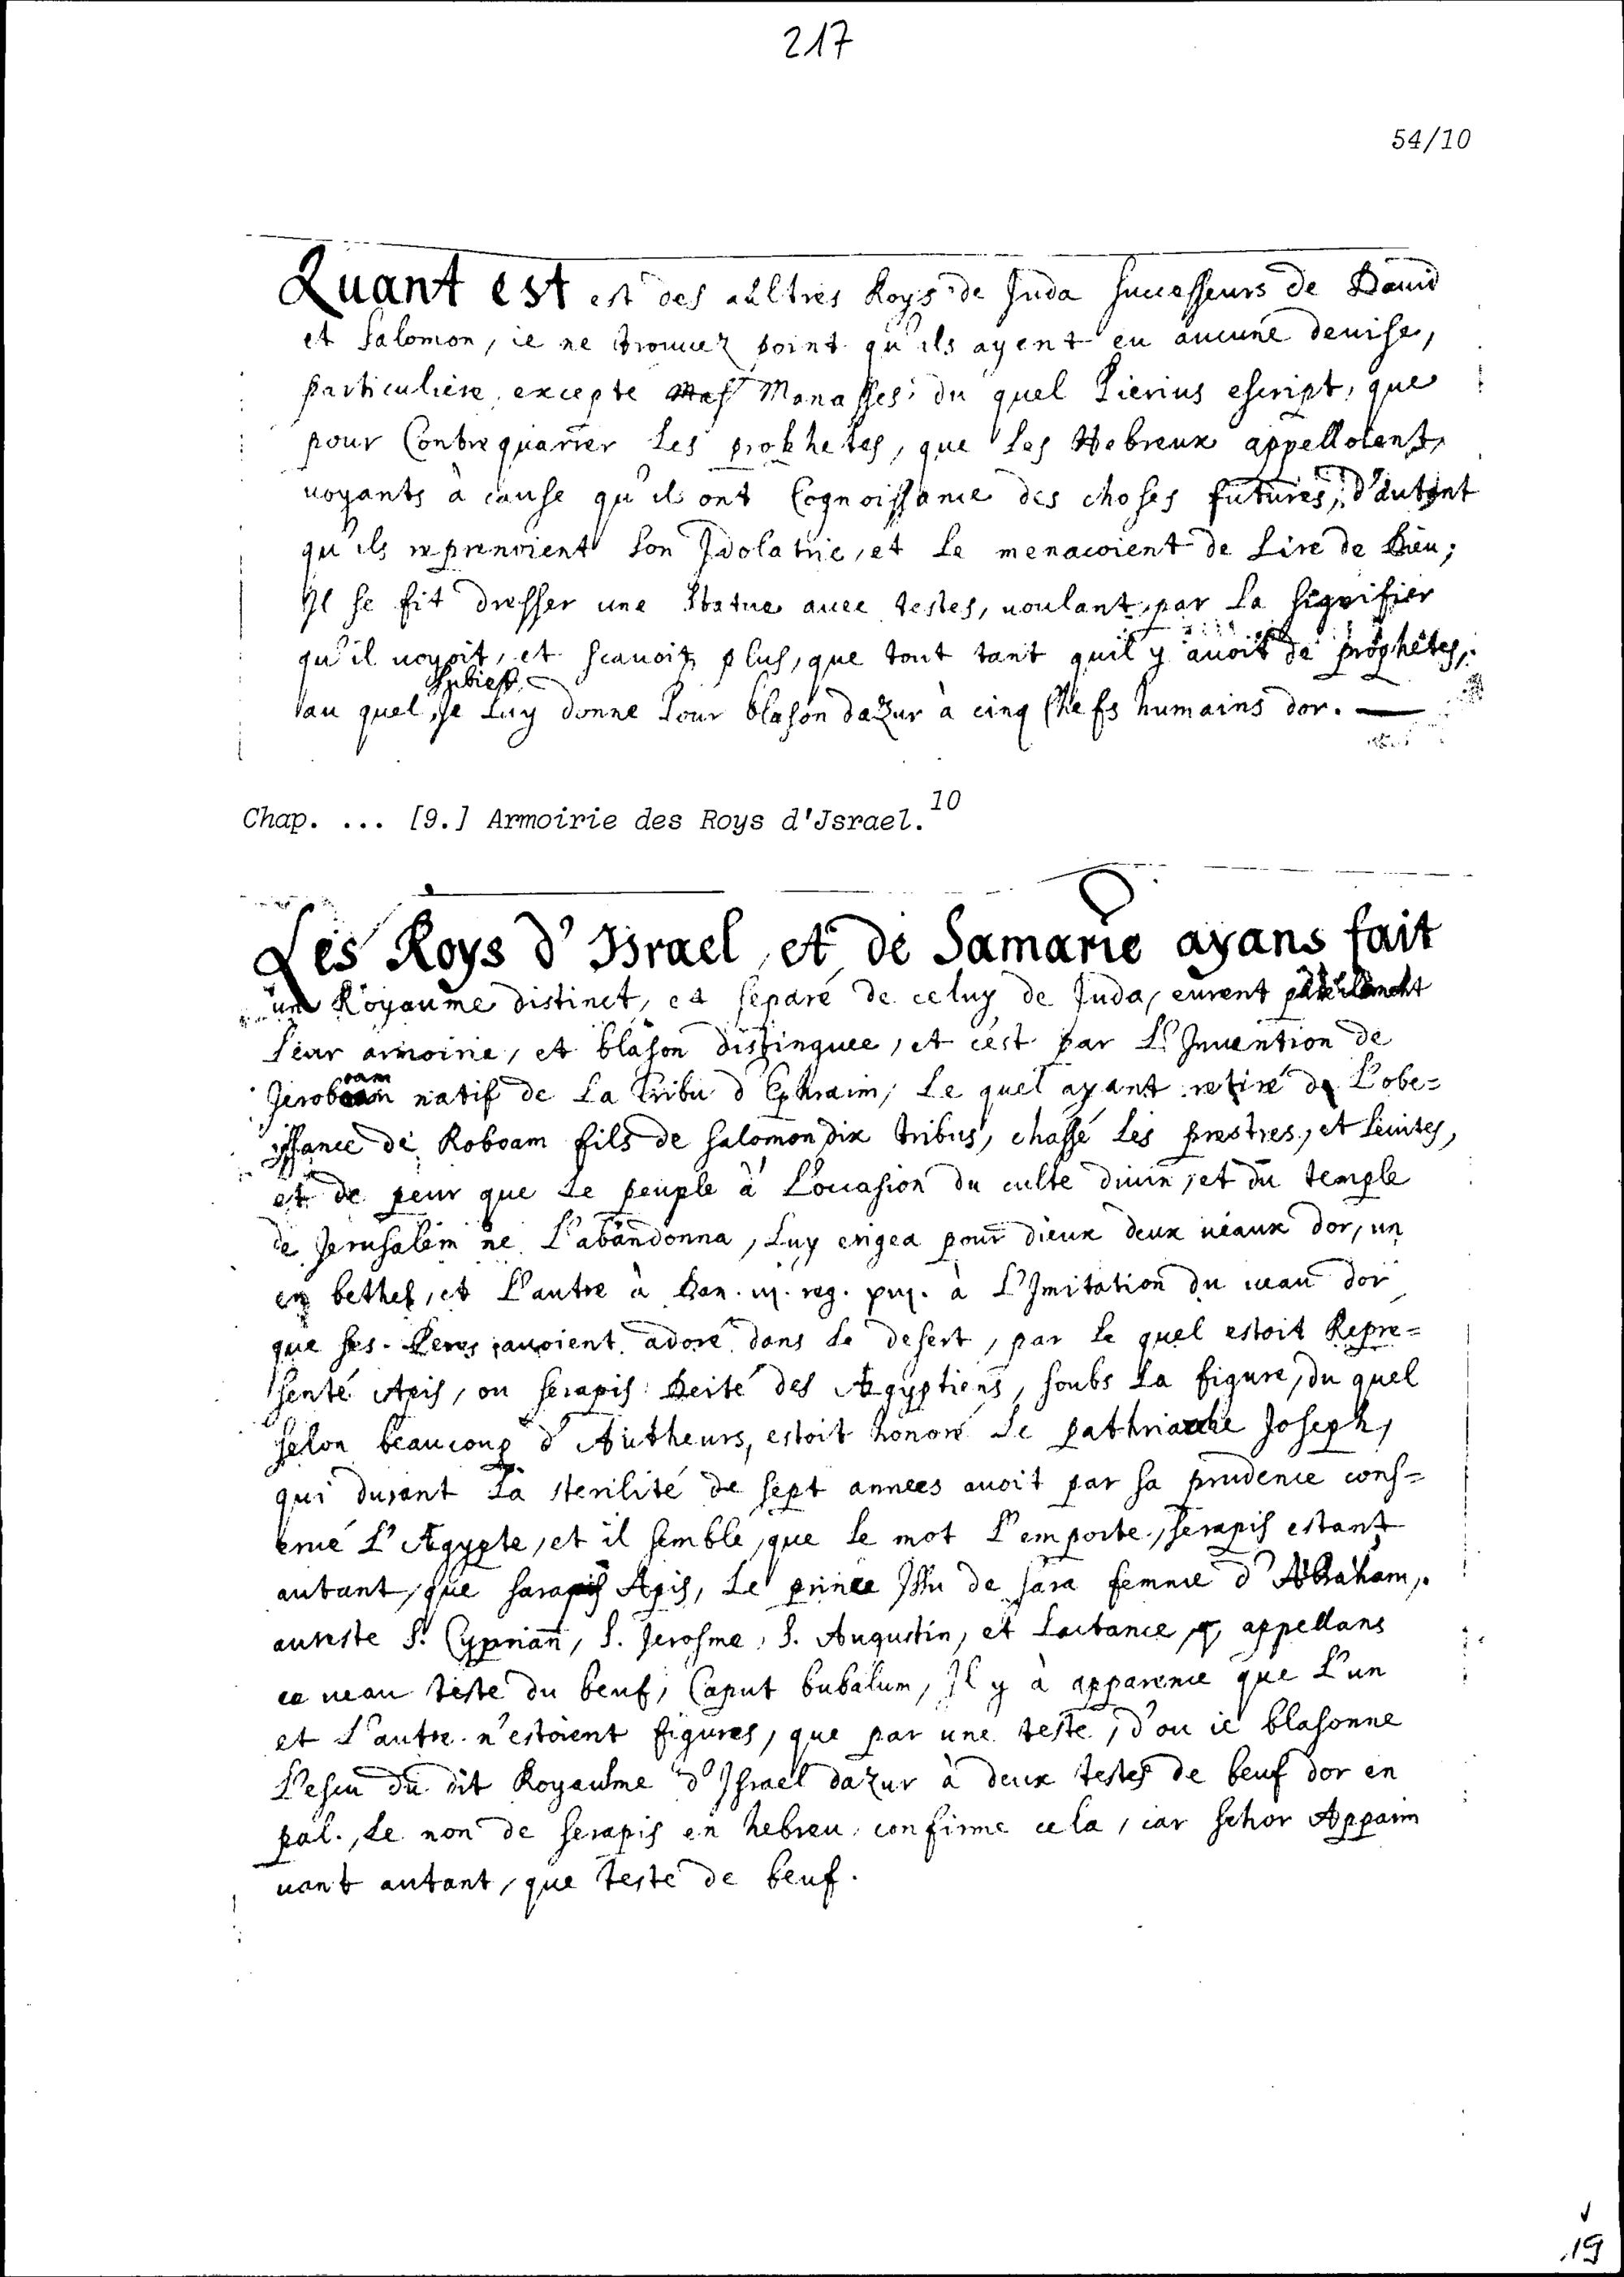 217
54/10
Quant est est des aultres Roys de Juda successeurs de Dauid
et Salomon, ie ne trouuez point qu'ils ayent eu aucune deuise,
particuliere, excepte Manasses du quel Pierius escript, que
pour Contrequarrer les prophetes, que les Hebreux appelloient,
uoyants à cause qu'il ont Cognoissance des choses futures, d'autant
qu'ils reprenoient son Jdolatrie, et le menacoient de Lire de Dieu;
Jl se fit dresser une Statue auec testes, uoulant, par la signifier
qu'il uoyoit, et scauoit plus, que tout tant quil y auoit de prophêtes,
subiect
au quel, Je Luy donne Pour blason dazur à cinq Chefs humains dor.
Chap. ... [9.] Armoirie des Roys d'Jsrael.10
Les Roys d'Jsrael, et de Samarie ayans fait
un Royaume distinct, et separé de celuy de Juda, eurent
leur armoirie, et blason distinguee, et c'est par L'Inuention de
Jeroboam natif de La Tribu d'Ephraim, Le quel ayant retiré de L'obe=
issance de Roboam fils de Salomon dix tribus, chassé Les prestres, et Leuites,
et de peur que Le peuple à L'occasion du culte diuin, et du temple
de Jerusalem ne L'abandonna, Luy erigea pour dieux deux ueaux dor, un
en bethel, et L'autre à Dan. iij. reg. xiij. à L'Jmitation du ueau dor
que ses Peres auoient adoré dans Le desert, par Le quel estoit Repre=
senté Apis, ou serapis Deité des Ægyptiens, soubs La figure, du quel
selon beaucoup d'Autheurs, estoit honoré Le pathriarche Joseph,
qui durant La sterilité de sept annees auoit par sa prudence cons=
erué L'Ægypte, et il semble, que Le mot L'emporte, serapis estant
autant, que sara Apis, Le prince Jssu de sara femme d'Abraham,
aureste S. Cyprian, S. Jerosme, S. Augustin, et Lactance, appellans
ce ueau teste du beuf, Caput bubalum, Jl y à apparence que L'un
et L'autre n'estoient figures, que par une teste, d'ou ie blasonne
L'escu du dit Royaulme d'Jsrael dazur à deux testes de beuf dor en
pal., Le non de serapis en hebreu confirme cela, car schor Appaim
uant autant, que teste de beuf.
19